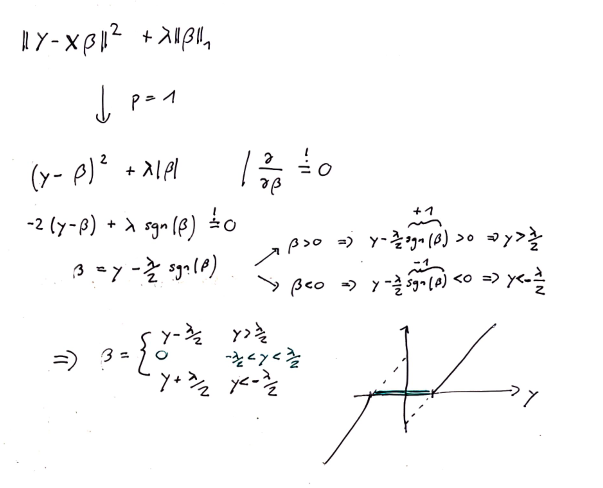 ‖Y-Xβ‖² + λ‖β‖₁
↓ p=1
(y-β)² + λ|β| | ∂/∂β != 0
-2(y-β) + λ sgn(β) != 0
β>0 ⇒ y-λ/2 sgn(β) >0 ⇒ y>λ/2
+1
β = y - λ/2 sgn(β)
β<0 ⇒ y-λ/2 sgn(β) <0 ⇒ y<-λ/2
-1
⇒ β = { y-λ/2 y>λ/2
0 -λ/2<y<λ/2
y+λ/2 y<-λ/2
y